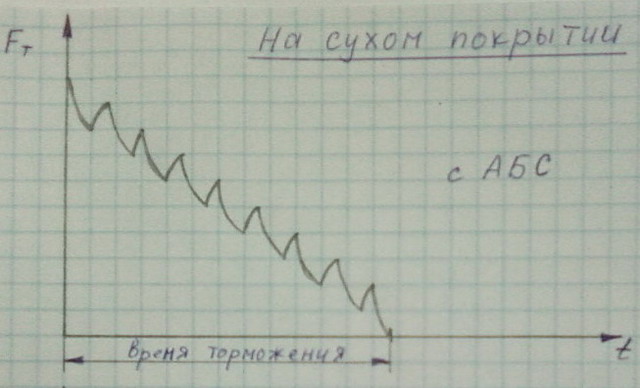 На сухом покрытии
Fт
с АБС
время торможения
t